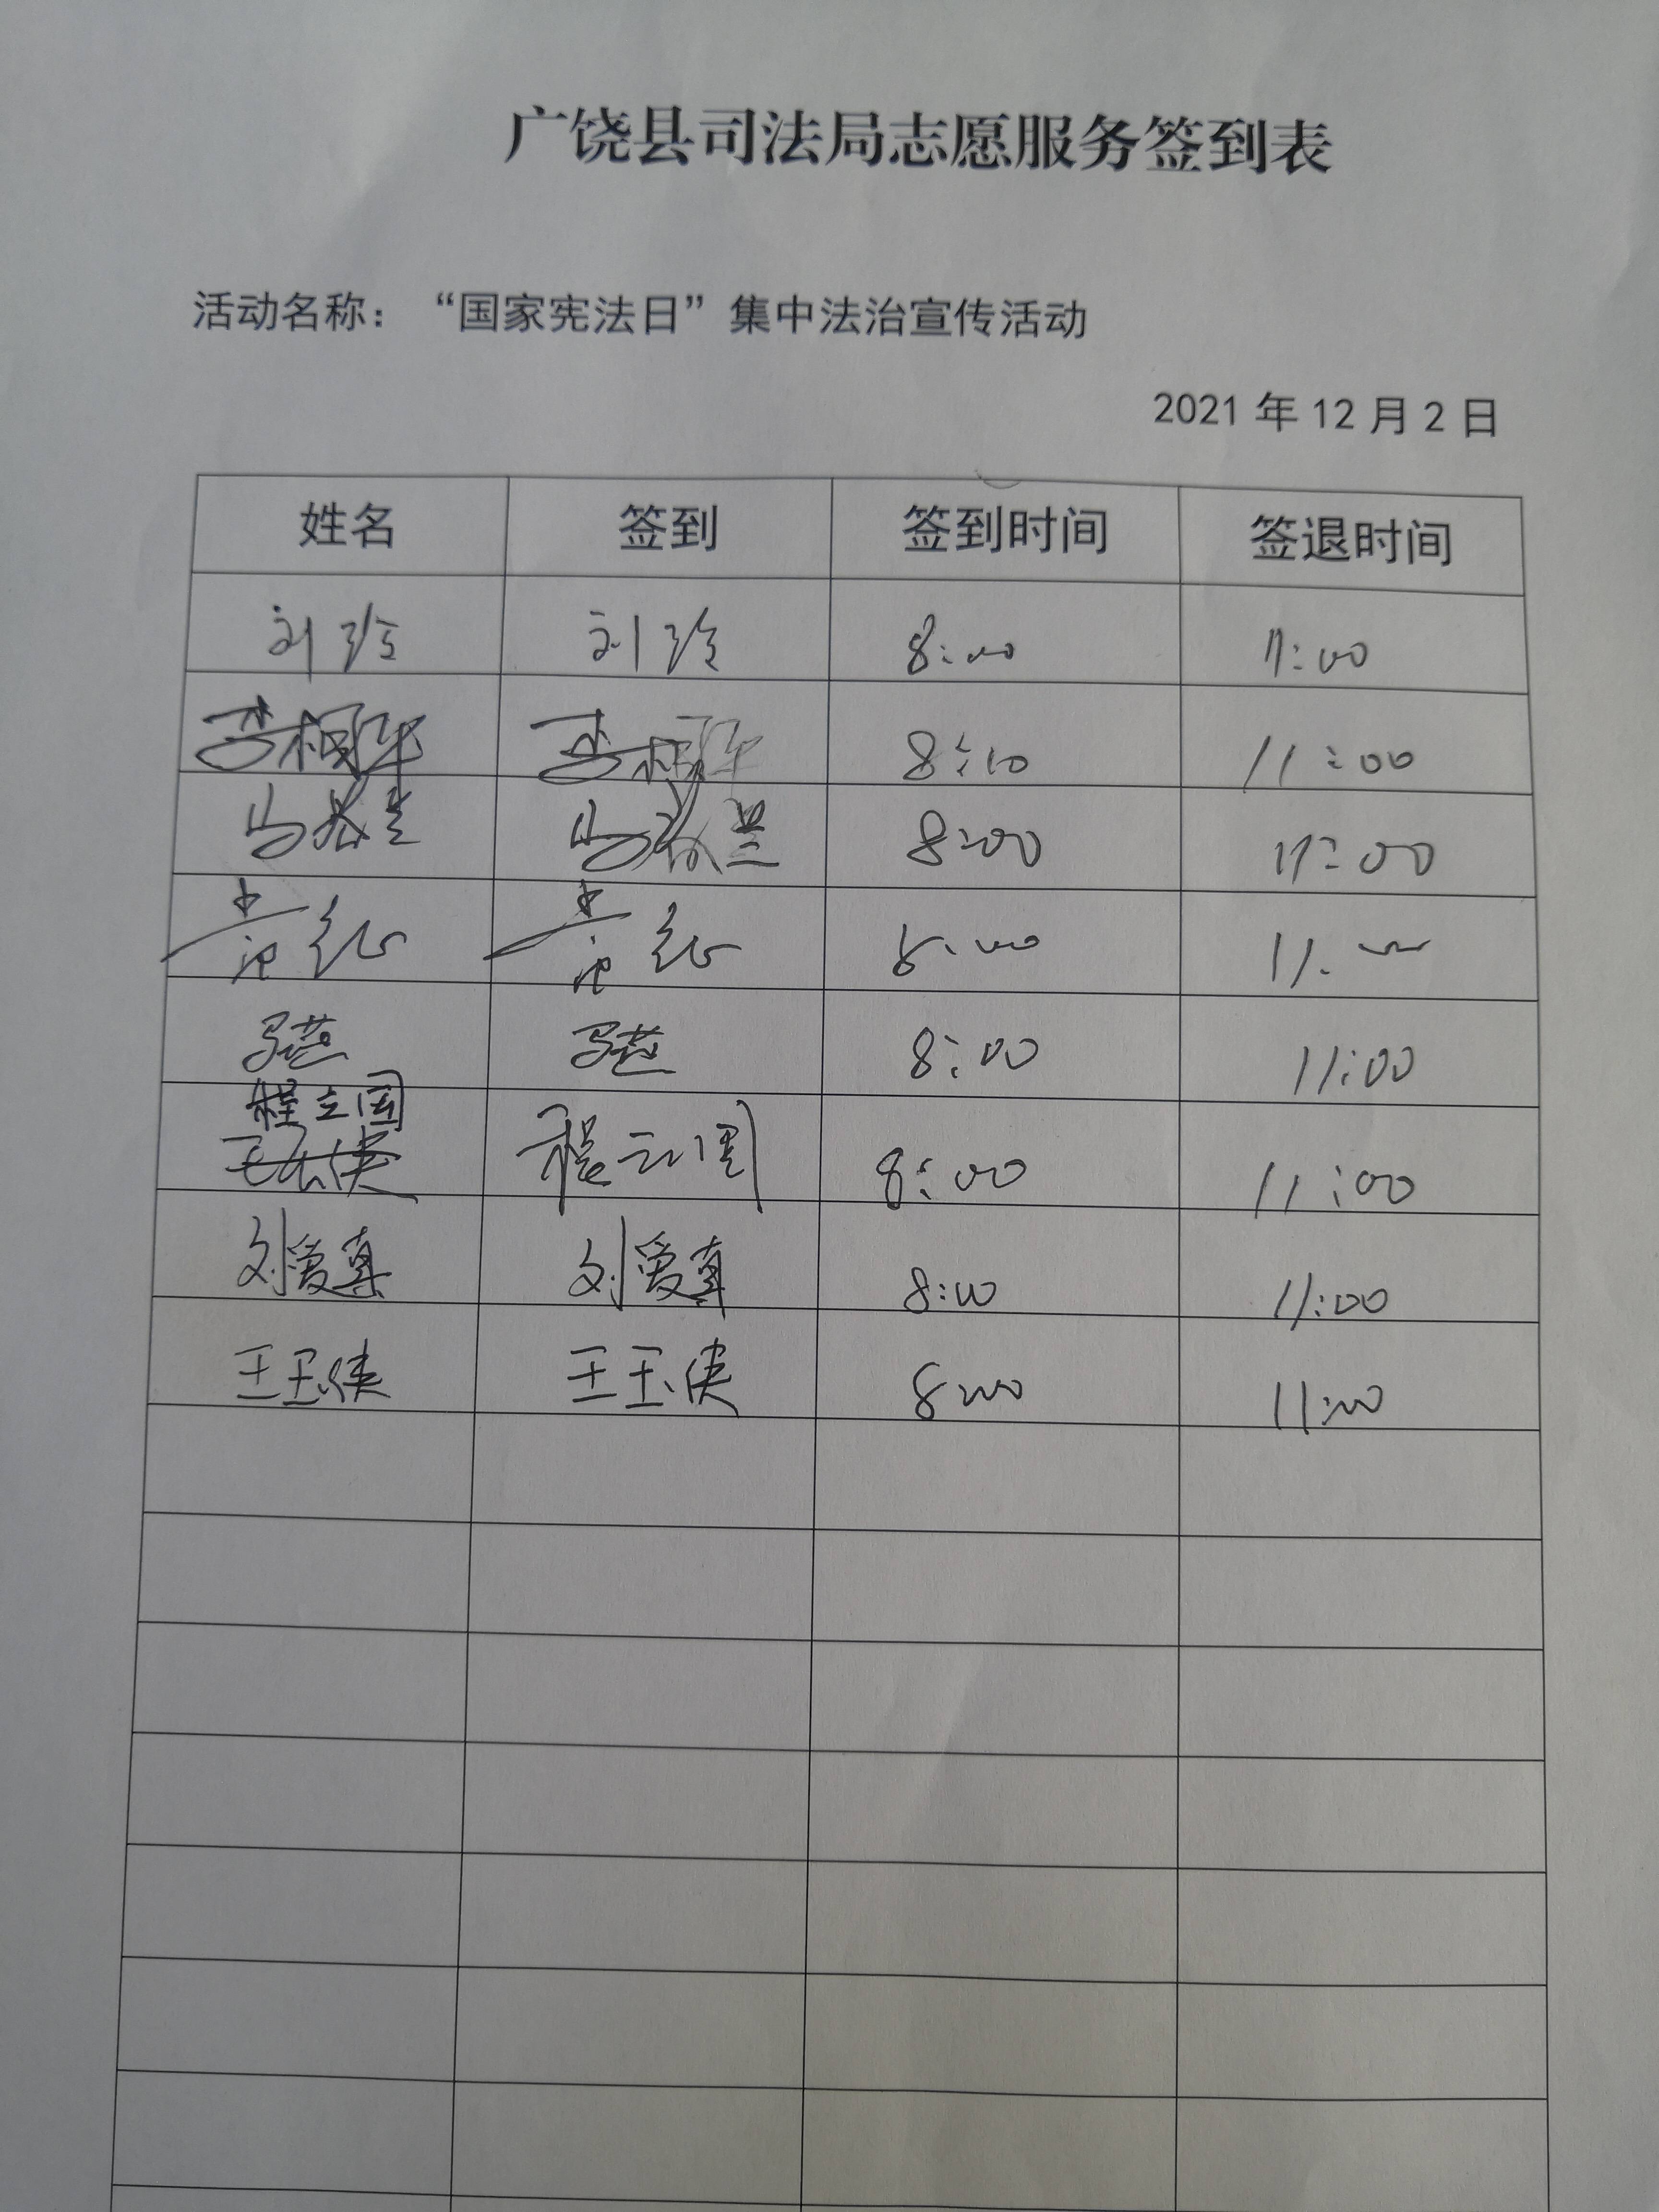 广饶县司法局志愿服务签到表
活动名称：“国家宪法日”集中法治宣传活动
2021年12月2日
姓名 签到 签到时间 签退时间
刘玲 刘玲 8:00 11:00
8:10 11:00
马 兰 马 兰 8:00 11:00
8:00 11:00
马燕 马燕 8:00 11:00
程立国
程立国 8:00 11:00
刘爱真 刘爱真 8:00 11:00
王玉侠 王玉侠 8:00 11:00